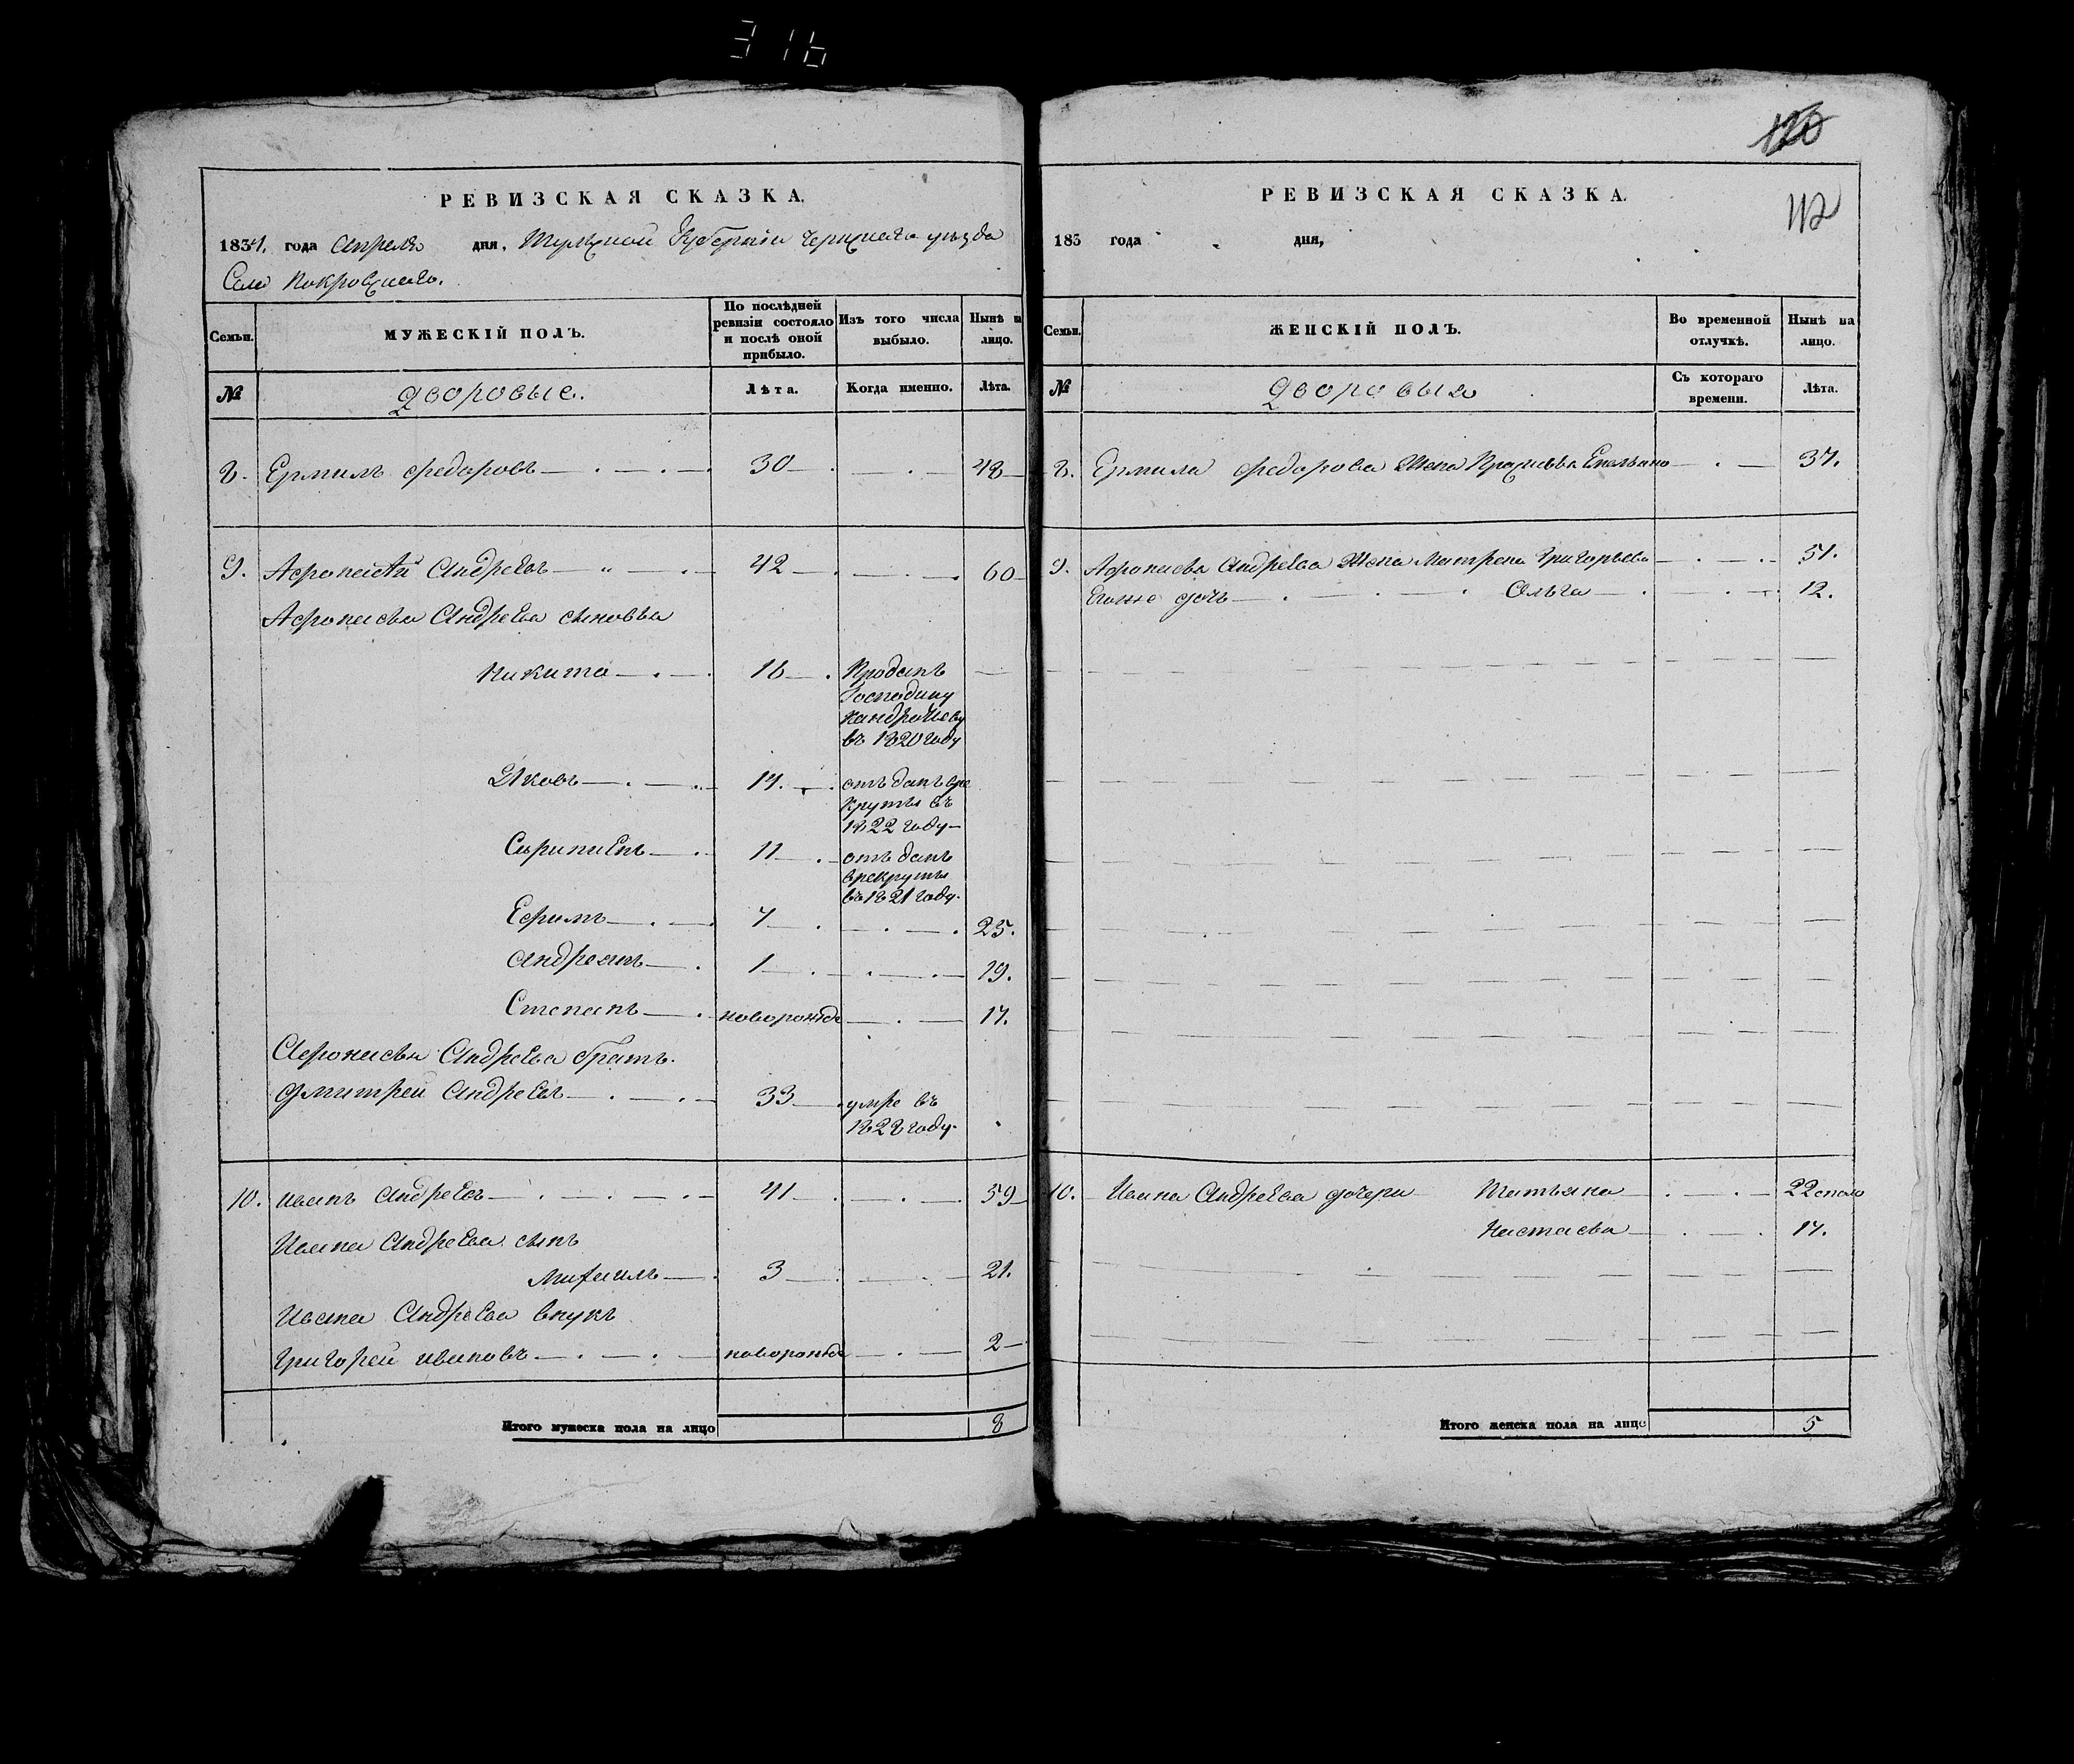 316
РЕВИЗСКАЯ СКАЗКА.
1834. года Апреля дня, Тульской Губернiи Чернскаго уѣзда
Села Покровскаго.
Семьи.
МУЖЕСКIЙ ПОЛЪ.
По послѣдней ревизiи состояло и послѣ оной прибыло.
Изъ того числа выбыло.
Нынѣ на лицо.
№
Дворовые.
Лѣта.
Когда именно.
Лѣта.
8. Ермилъ Федоровъ 30 48
9. Афонасѣй Андреевъ 42 60
Афонасья Андреева сыновья
Никита 16 Проданъ
Господину
въ 1820 году
Яковъ 17. отъ данъ вре
круты въ
1822 году
11 отъ данъ
врекруты
въ 1821 году.
Ефимъ 7 25.
Андреянъ 1 19.
Степанъ новорожде 17.
Афонасья Андреева братъ.
Дмитрей Андреевъ 33 умре въ
1828 году.
10. Иванъ Андреевъ 41 59
Ивана Андреева сынъ
Михаилъ 3 21.
Ивана Андреева внукъ
Григорей Ивановъ новорожде 2
Итого мужеска пола на лицо 8
120
112
РЕВИЗСКАЯ СКАЗКА.
183 года дня,
Семьи.
ЖЕНСКIЙ ПОЛЪ.
Во временной отлучкѣ.
Нынѣ на лицо.
№
Дворовыя
Съ котораго времени.
Лѣта.
8. Ермила Федорова Жена Прасковья Емельяно 37.
9. Афонасья Андреева Жена Матрена Григорьева 51.
Егоже дочь Ольга 12.
10. Ивана Андреева дочери Татьяна 22
Настасья 17.
Итого женска пола на лицо 5